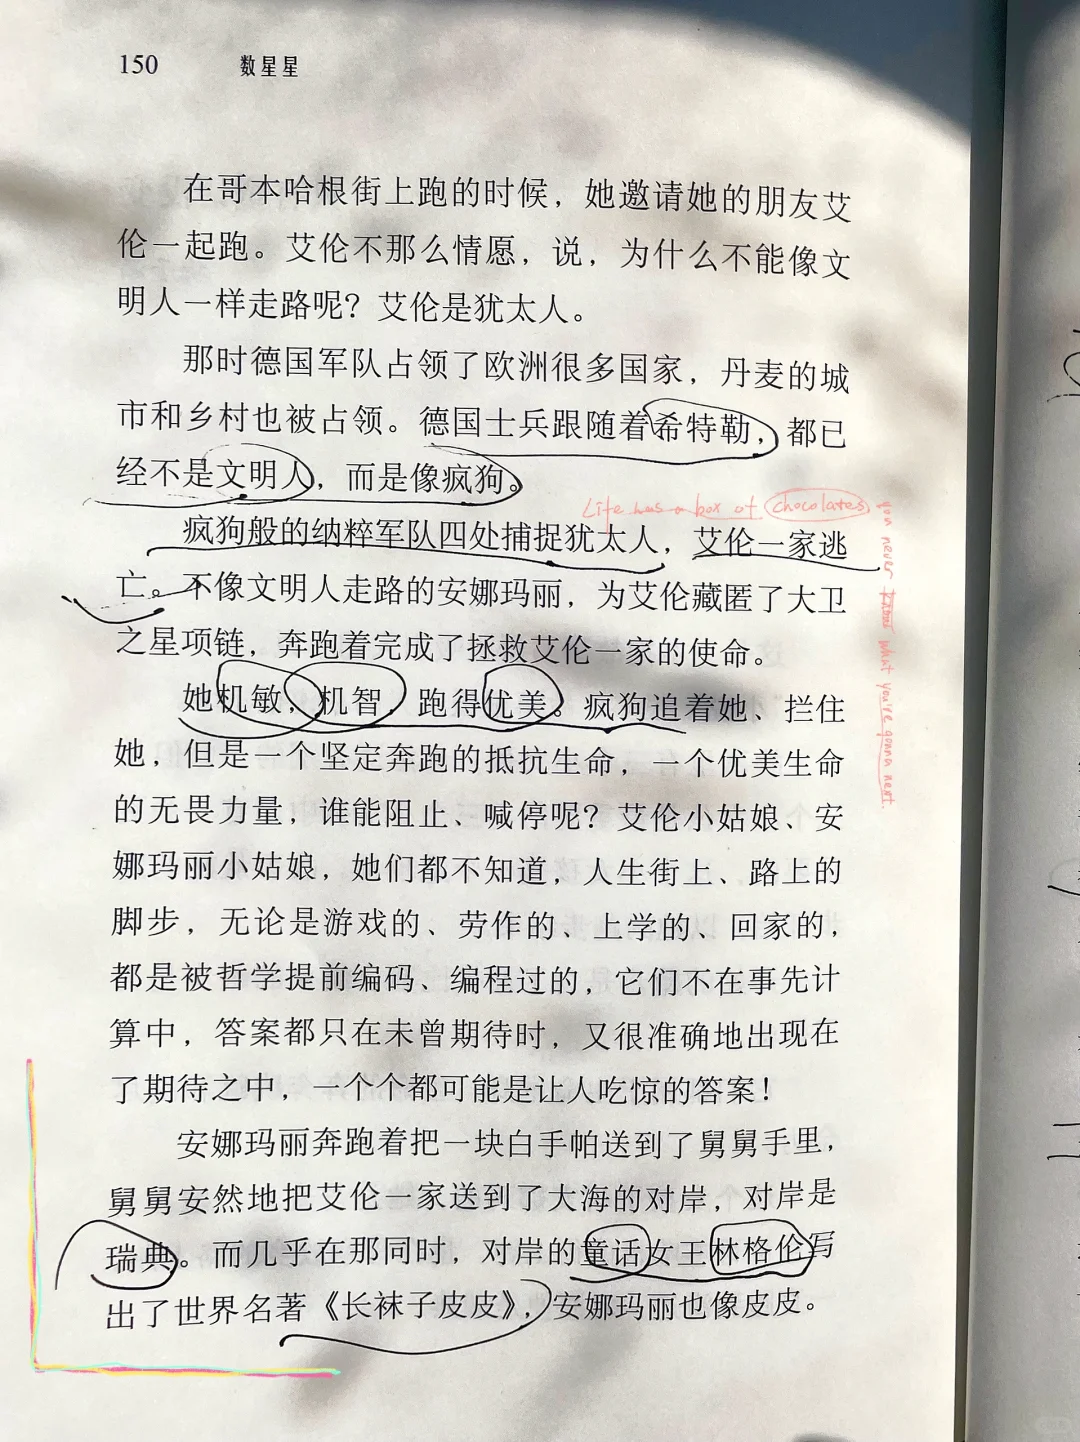 150 数星星
在哥本哈根街上跑的时候，她邀请她的朋友艾
伦一起跑。艾伦不那么情愿，说，为什么不能像文
明人一样走路呢？艾伦是犹太人。
那时德国军队占领了欧洲很多国家，丹麦的城
市和乡村也被占领。德国士兵跟随着希特勒，都已
经不是文明人，而是像疯狗。
Life was a box of chocolates
you never know what you're gonna next.
疯狗般的纳粹军队四处捕捉犹太人，艾伦一家逃
亡。不像文明人走路的安娜玛丽，为艾伦藏匿了大卫
之星项链，奔跑着完成了拯救艾伦一家的使命。
她机敏，机智，跑得优美。疯狗追着她、拦住
她，但是一个坚定奔跑的抵抗生命，一个优美生命
的无畏力量，谁能阻止、喊停呢？艾伦小姑娘、安
娜玛丽小姑娘，她们都不知道，人生街上、路上的
脚步，无论是游戏的、劳作的、上学的、回家的，
都是被哲学提前编码、编程过的，它们不在事先计
算中，答案都只在未曾期待时，又很准确地出现在
了期待之中，一个个都可能是让人吃惊的答案！
安娜玛丽奔跑着把一块白手帕送到了舅舅手里，
舅舅安然地把艾伦一家送到了大海的对岸，对岸是
瑞典。而几乎在那同时，对岸的童话女王林格伦写
出了世界名著《长袜子皮皮》，安娜玛丽也像皮皮。